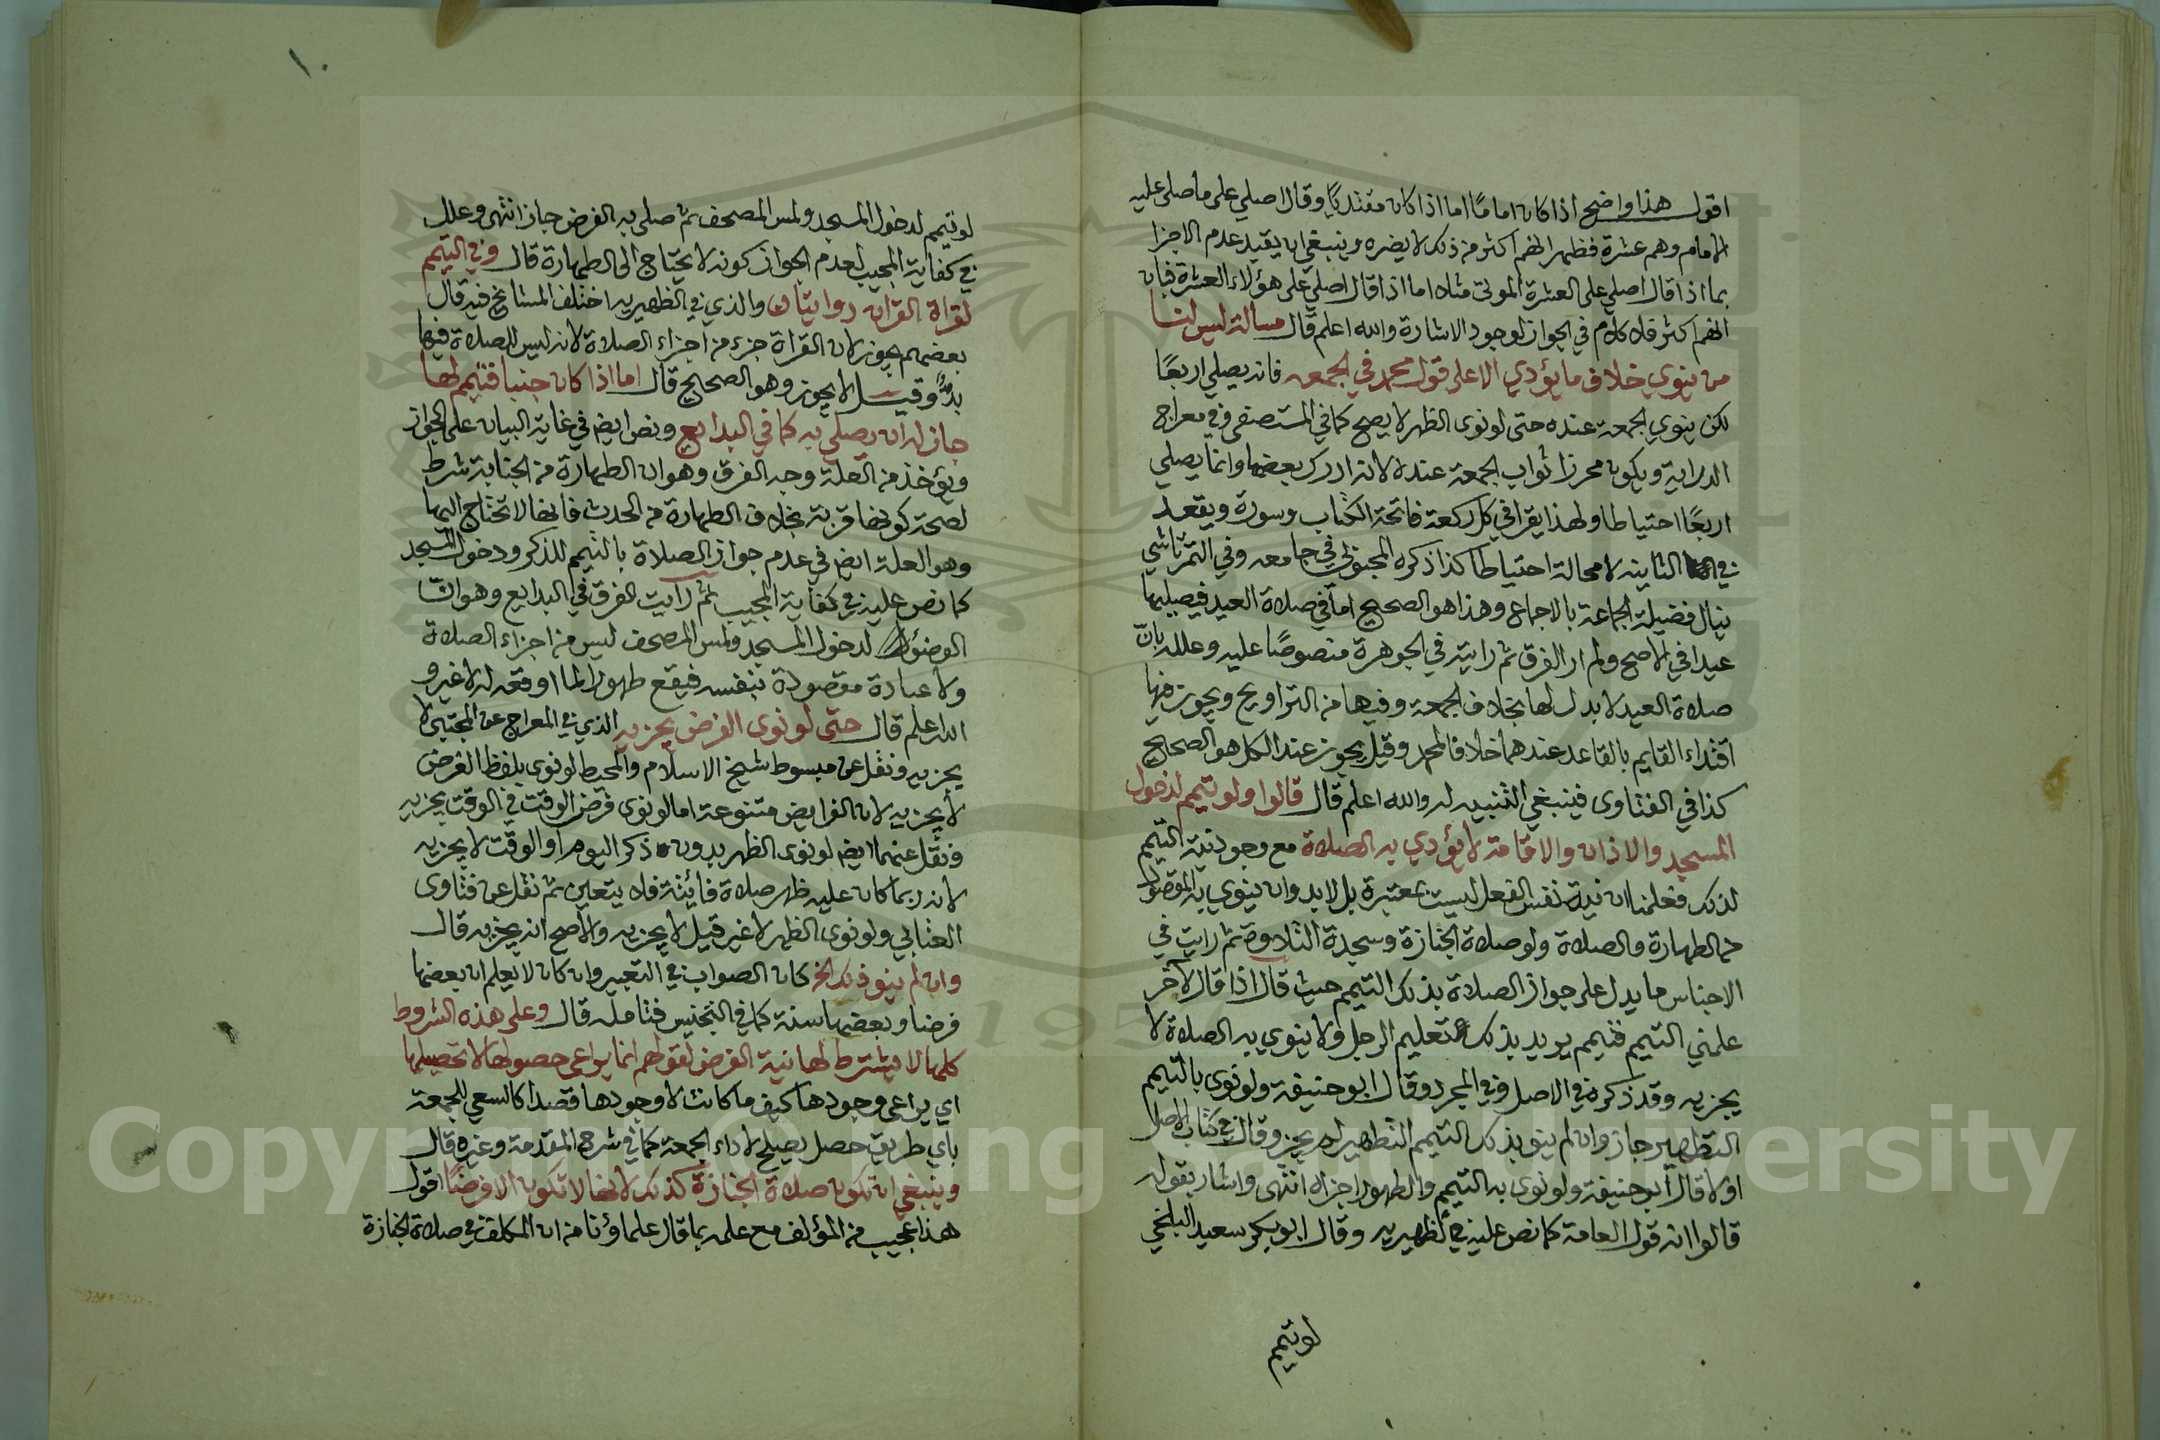 اقول هذا واضح اذا كان اماما اما اذا كان مقتديا وقال اصلي على ما صلى عليه
الامام وهم عشرة فظهر انهم اكثر من ذلك لا يضره وينبغي ان يقيد عدم الاجزا
بما اذا قال اصلي على العشرة الموتى مثلا اما اذا قال اصلي على هؤلاء العشرة فبان
انهم اكثر فلا كلام في الجواز لوجود الاشارة والله اعلم قال مسالة ليس لنا
من ينوي خلاف ما يؤدي الا على قول محمد في الجمعه فانه يصلي اربعا
لكن ينوي الجمعة عنده حتى لو نوى الظهر لا يصح كما في المستصفى وفي معراج
الدراية ويكون محرزا ثواب الجمعة عنده لانه ادرك بعضها وانما يصلي
اربعا احتياطا ولهذا يقرا في كل ركعة فاتحة الكتاب وسورة ويقعد
في الثانية لا محالة احتياطا كذا ذكره المحبوبي في جامعه وفي التمرتاشي
ينال فضيلة الجماعة بالاجماع وهذا هو الصحيح اما في صلاة العيد فيصليها
عيدا في الاصح ولم ار الفرق ثم رايته في الجوهرة منصوصا عليه وعلله بان
صلاة العيد لا بدل لها بخلاف الجمعة وفيها من التراويح ويجوز فيها
اقتداء القايم بالقاعد عندهما خلافا لمحمد وقيل يجوز عند الكل هو الصحيح
كذا في الفتاوى فينبغي التنبيه له والله اعلم قال قالوا ولو تيمم لدخول
المسجد والاذان والاقامة لا يؤدي به الصلاة مع وجود نية التيمم
لذلك فعلمنا ان نية نفس الفعل ليست بمعتبرة بل لا بد وان ينوي به المقصود
من الطهارة والصلاة ولو صلاة الجنازة وسجدة التلاوة ثم رايت في
الاجناس ما يدل على جواز الصلاة بذلك التيمم حيث قال اذا قال لآخر
علمني التيمم فتيمم يريد بذلك التعليم الرجل ولا ينوي به الصلاة لا
يجزيه وقد ذكره في الاصل وفي المجرد وقال ابو حنيفة ولو نوى بالتيمم
التطهير جاز وان لم ينو بذلك التيمم التطهير لم يجز وقال في كتاب الاصل
اولا قال ابو حنيفة ولو نوى به التيمم والطهور اجزاه انتهى واشار بقوله
قالوا انه قول العامة كما نص عليه في الظهيريه وقال ابو بكر سعيد البلخي
لو تيمم
لو تيمم لدخول المسجد ولمس المصحف ثم صلى به الفرض جاز انتهى وعلل
في كفاية المجيب لعدم الجواز كونه لا يحتاج الى الطهارة قال وفي التيمم
لقراة القران روايتان والذي في الظهيريه اختلف المشايخ فيه قال
بعضهم يجوز لان القراة جزء من اجزاء الصلاة لانه ليس للصلاة فيها
بد وقيل لا يجوز وهو الصحيح قال اما اذا كان جنبا فتيمم لها
جاز له ان يصلي به كما في البدايع ونص ايضا في غاية البيان على الجواز
ويؤخذ من العلة وجه الفرق وهو ان الطهارة من الجنابة شرط
لصحة كونها قربة بخلاف الطهارة من الحدث فانها لا تحتاج اليها
وهو العلة ايضا في عدم جواز الصلاة بالتيمم للذكر ودخول المسجد
كما نص عليه في كفاية المجيب ثم رايت الفرق في البدايع وهو ان
الوضوء لدخول المسجد ولمس المصحف ليس من اجزاء الصلاة
ولا عبادة مقصودة بنفسه فيقع طهورا لما اوقعه له لا غير و
الله اعلم قال حتى لو نوى الفرض يجزيه الذي في المعراج عن المجتبى لا
يجزيه ونقل عن مبسوط شيخ الاسلام والمحيط لو نوى بلفظ الفرض
لا يجزيه لان الفرايض متنوعة اما لو نوى فرض الوقت في الوقت يجزيه
ونقل عنهما ايضا لو نوى الظهر بدون ذكر اليوم او الوقت لا يجزيه
لانه ربما كان عليه ظهر صلاة فائتة فلا يتعين ثم نقل عن فتاوى
العتابي ولو نوى الظهر لا غير قيل لا يجزيه والاصح انه يجزيه قال
وان لم ينو ذلك الخ كان الصواب في التعبير وان كان لا يعلم ان بعضها
فرضا وبعضها سنة كما في التجنيس فتامله قال وعلى هذه الشروط
كلها لا يشترط لها نية الفرض لقولهم انما يراعى حصولها لا تحصيلها
اي يراعى وجودها كيف ما كانت لا وجودها قصدا كالسعي للجمعة
باي طريق حصل يصلح لاداء الجمعة كما في شرح المقدمة وغيره قال
وينبغي ان تكون صلاة الجنازة كذلك لانها لا تكون الا فرضا اقول
هذا عجيب من المؤلف مع علمه بما قال علماؤنا من ان المكلف في صلاة الجنازة
Copyright © King Saud University
1957